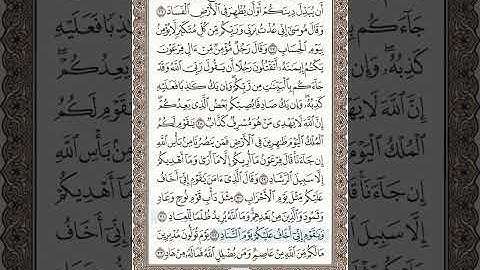 أَن يُبَدِّلَ دِينَكُمْ أَوْ أَن يُظْهِرَ فِى ٱلْأَرْضِ ٱلْفَسَادَ ٢٦
وَقَالَ مُوسَىٰٓ إِنِّى عُذْتُ بِرَبِّى وَرَبِّكُم مِّن كُلِّ مُتَكَبِّرٍ لَّا يُؤْمِنُ
بِيَوْمِ ٱلْحِسَابِ ٢٧ وَقَالَ رَجُلٌ مُّؤْمِنٌ مِّنْ ءَالِ فِرْعَوْنَ
يَكْتُمُ إِيمَٰنَهُۥٓ أَتَقْتُلُونَ رَجُلًا أَن يَقُولَ رَبِّىَ ٱللَّهُ وَقَدْ
جَآءَكُم بِٱلْبَيِّنَٰتِ مِن رَّبِّكُمْ وَإِن يَكُ كَٰذِبًا فَعَلَيْهِ
كَذِبُهُۥ وَإِن يَكُ صَادِقًا يُصِبْكُم بَعْضُ ٱلَّذِى يَعِدُكُمْ
إِنَّ ٱللَّهَ لَا يَهْدِى مَنْ هُوَ مُسْرِفٌ كَذَّابٌ ٢٨ يَٰقَوْمِ لَكُمُ
ٱلْمُلْكُ ٱلْيَوْمَ ظَٰهِرِينَ فِى ٱلْأَرْضِ فَمَن يَنصُرُنَا مِنۢ بَأْسِ ٱللَّهِ
إِن جَآءَنَا قَالَ فِرْعَوْنُ مَآ أُرِيكُمْ إِلَّا مَآ أَرَىٰ وَمَآ أَهْدِيكُمْ
إِلَّا سَبِيلَ ٱلرَّشَادِ ٢٩ وَقَالَ ٱلَّذِىٓ ءَامَنَ يَٰقَوْمِ إِنِّىٓ أَخَافُ
عَلَيْكُم مِّثْلَ يَوْمِ ٱلْأَحْزَابِ ٣٠ مِثْلَ دَأْبِ قَوْمِ نُوحٍ وَعَادٍ
وَثَمُودَ وَٱلَّذِينَ مِنۢ بَعْدِهِمْ وَمَا ٱللَّهُ يُرِيدُ ظُلْمًا لِّلْعِبَادِ ٣١
وَيَٰقَوْمِ إِنِّىٓ أَخَافُ عَلَيْكُمْ يَوْمَ ٱلتَّنَادِ ٣٢ يَوْمَ تُوَلُّونَ مُدْبِرِينَ
مَا لَكُم مِّنَ ٱللَّهِ مِنْ عَاصِمٍ وَمَن يُضْلِلِ ٱللَّهُ فَمَا لَهُۥ مِنْ هَادٍ ٣٣